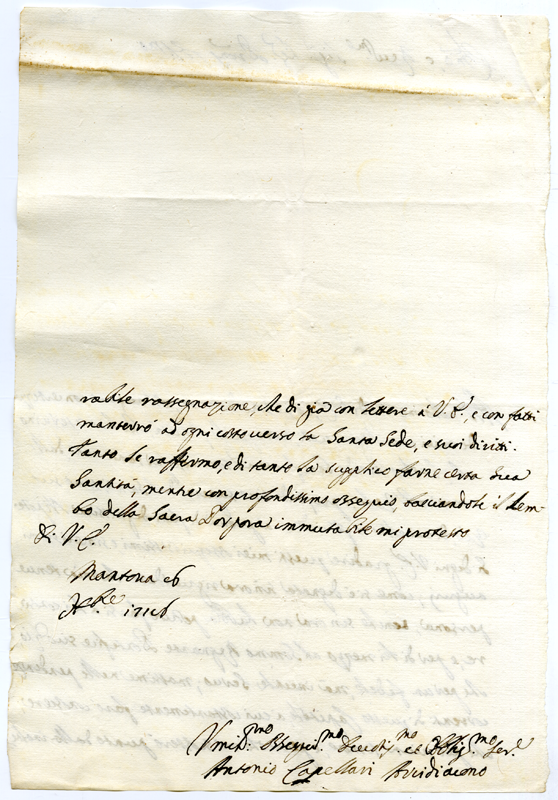 rabile rassegnazione, che di già con lettere à V. E., e con fatti
manterrò ad ogni costo verso la Santa Sede, e suoi diritti.
Tanto le raffermo, e di tanto la supplico farne certa Sua
Santità, mentre con profondissimo ossequio, basciandole il Lem-
bo della Sacra Porpora immutabile mi protesto
di V. E.
Mantova 26
Xbre 1716
Vmil:mo Osseqs:mo Devotis:mo et Oblig:mo Ser.e
Antonio Capellari Arcidiacono